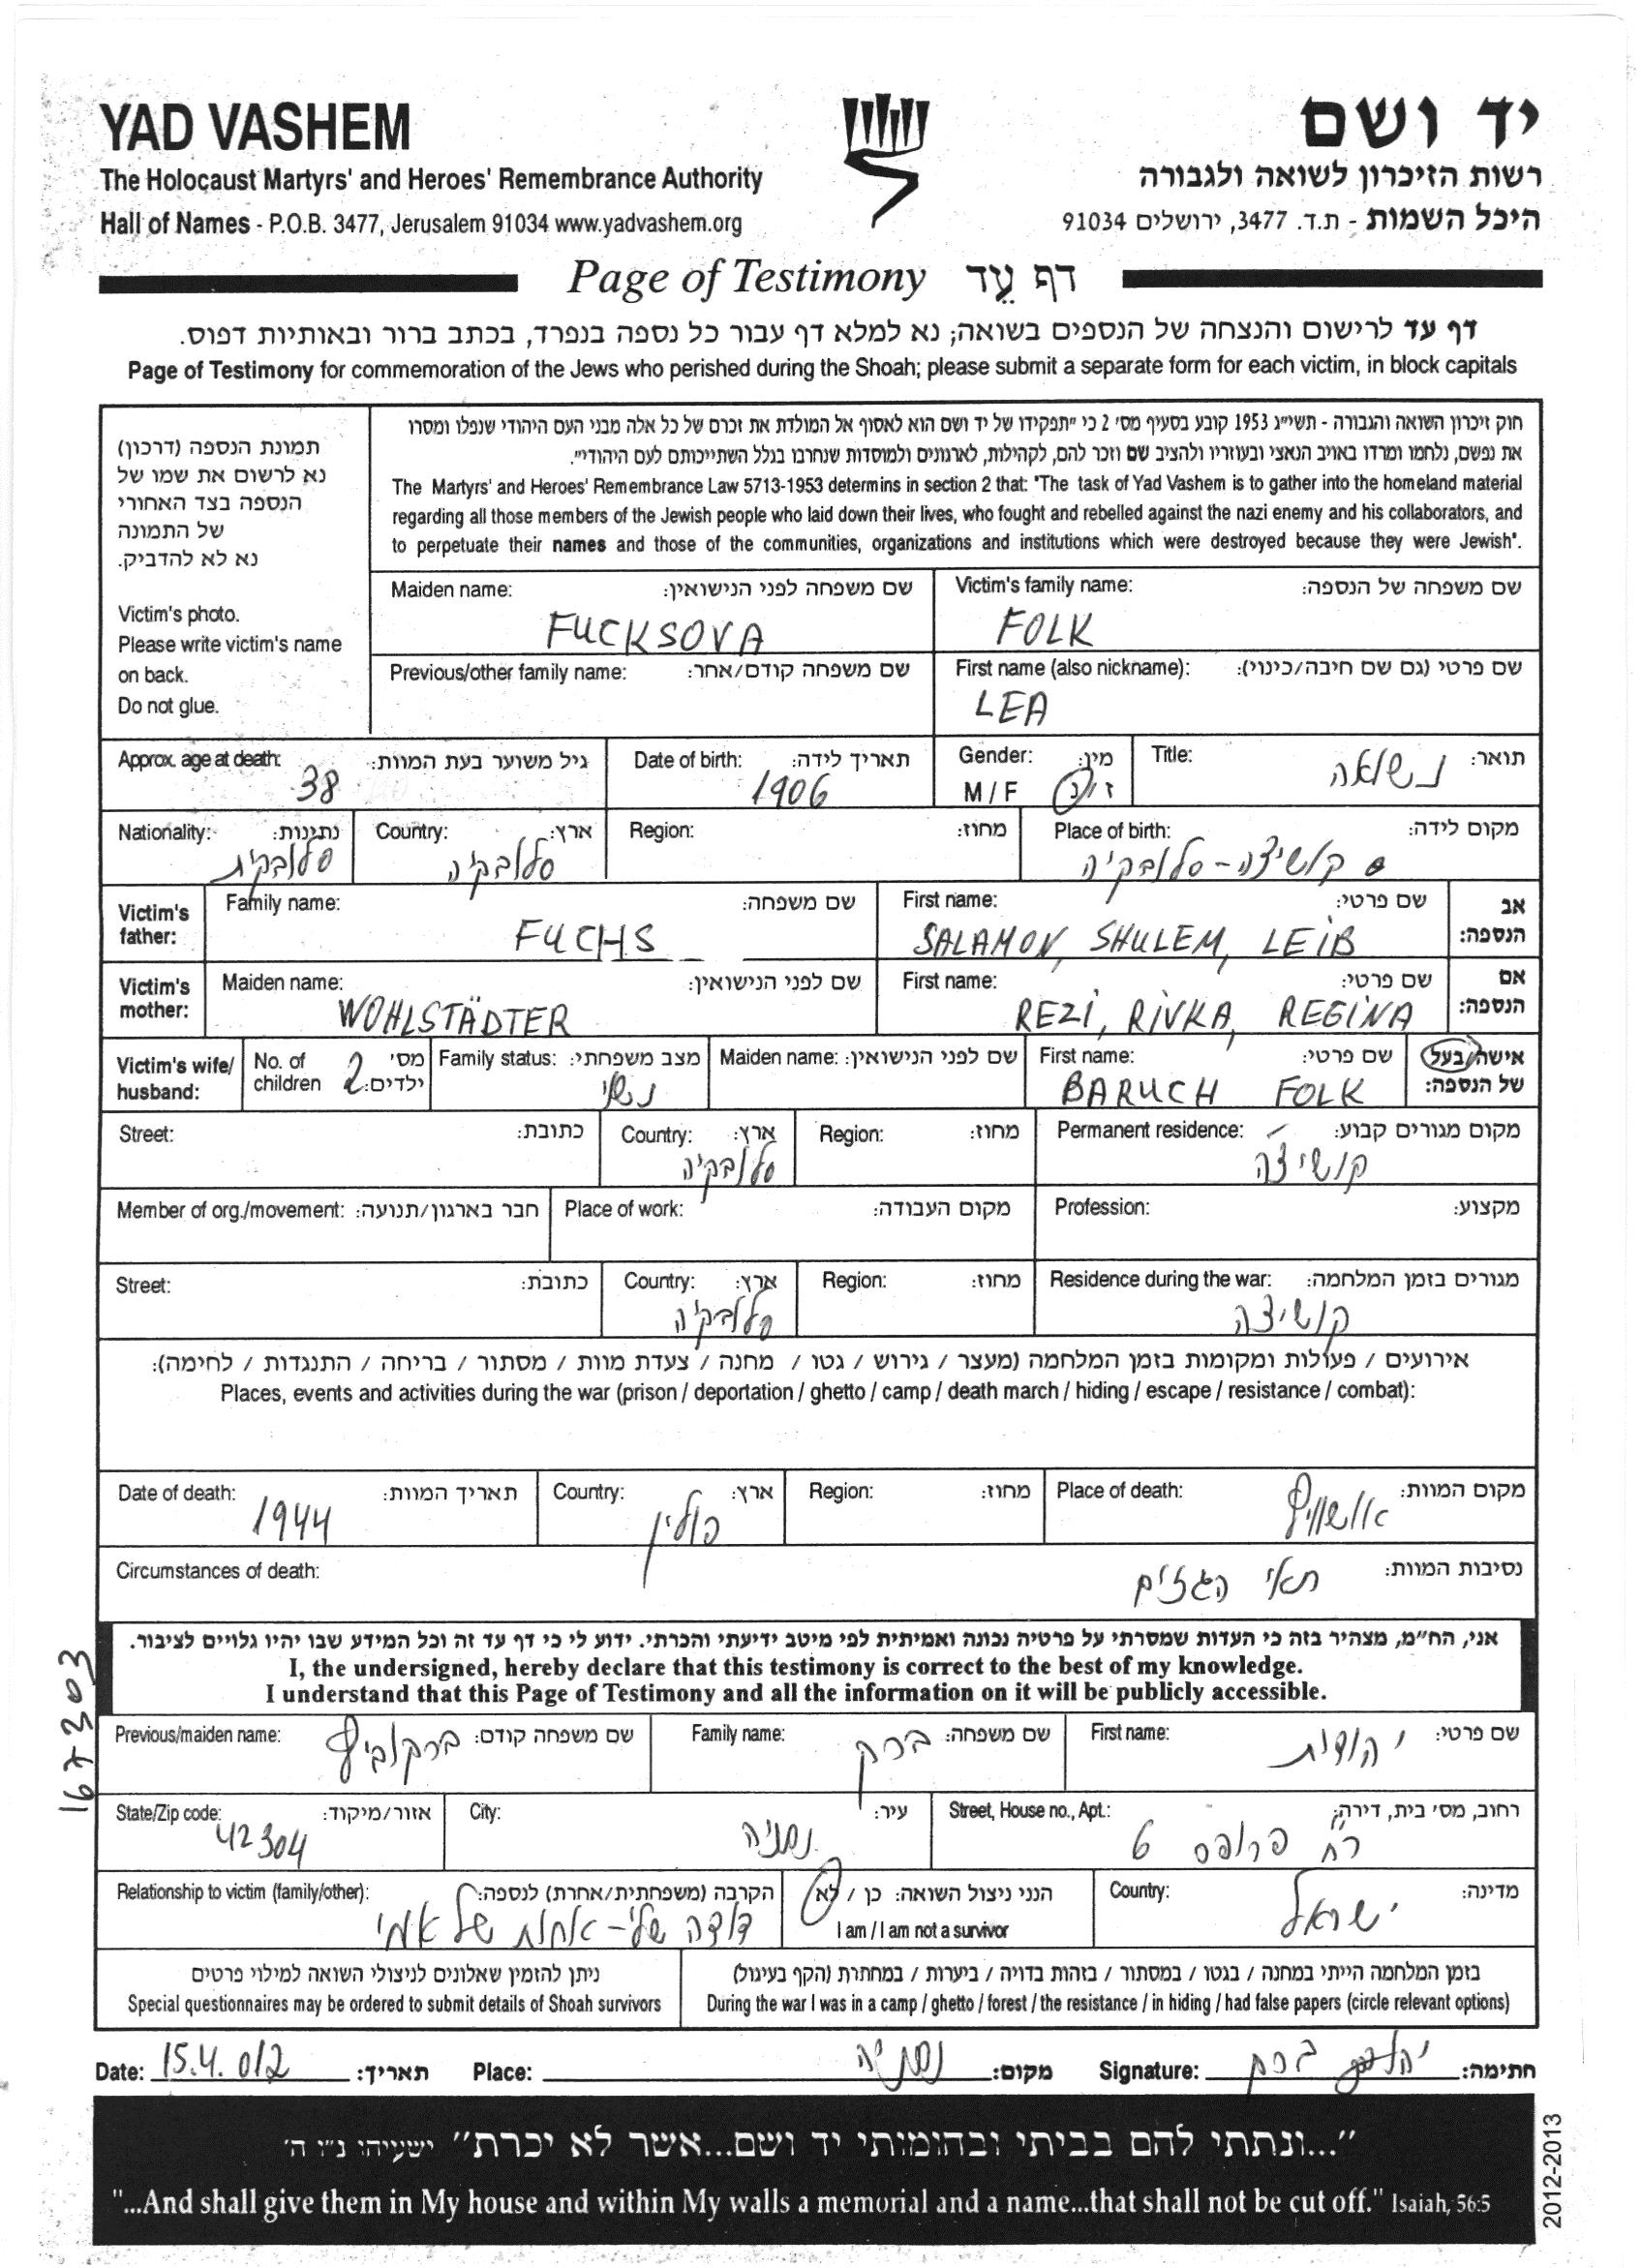 YAD VASHEM
The Holocaust Martyrs' and Heroes' Remembrance Authority
Hall of Names - P.O.B. 3477, Jerusalem 91034 www.yadvashem.org
יד ושם
רשות הזיכרון לשואה ולגבורה
היכל השמות - ת.ד. 3477, ירושלים 91034
Page of Testimony דף עֵד
דף עד לרישום והנצחה של הנספים בשואה; נא למלא דף עבור כל נספה בנפרד, בכתב ברור ובאותיות דפוס.
Page of Testimony for commemoration of the Jews who perished during the Shoah; please submit a separate form for each victim, in block capitals
תמונת הנספה (דרכון)
נא לרשום את שמו של
הנספה בצד האחורי
של התמונה
נא לא להדביק.
Victim's photo.
Please write victim's name
on back.
Do not glue.
חוק זיכרון השואה והגבורה - תשי"ג 1953 קובע בסעיף מס' 2 כי "תפקידו של יד ושם הוא לאסוף אל המולדת את זכרם של כל אלה מבני העם היהודי שנפלו ומסרו
את נפשם, נלחמו ומרדו באויב הנאצי ובעוזריו ולהציב שם וזכר להם, לקהילות, לארגונים ולמוסדות שנחרבו בגלל השתייכותם לעם היהודי".
The Martyrs' and Heroes' Remembrance Law 5713-1953 determins in section 2 that: "The task of Yad Vashem is to gather into the homeland material
regarding all those members of the Jewish people who laid down their lives, who fought and rebelled against the nazi enemy and his collaborators, and
to perpetuate their names and those of the communities, organizations and institutions which were destroyed because they were Jewish".
Maiden name: שם משפחה לפני הנישואין:
FUCKSOVA
Victim's family name: שם משפחה של הנספה:
FOLK
Previous/other family name: שם משפחה קודם/אחר:
First name (also nickname): שם פרטי (גם שם חיבה/כינוי):
LEA
Approx. age at death: גיל משוער בעת המוות:
38
Date of birth: תאריך לידה:
1906
Gender: מין:
M / F ז / נ
Title: תואר:
נשואה
Nationality: נתינות:
סלובקית
Country: ארץ:
סלובקיה
Region: מחוז:
Place of birth: מקום לידה:
קושיצה - סלובקיה
Victim's father: אב הנספה:
Family name: שם משפחה:
FUCHS
First name: שם פרטי:
SALAMON, SHULEM, LEIB
Victim's mother: אם הנספה:
Maiden name: שם לפני הנישואין:
WOHLSTÄDTER
First name: שם פרטי:
REZI, RIVKA, REGINA
Victim's wife/ husband: אישה/בעל של הנספה:
No. of children מס' ילדים:
2
Family status: מצב משפחתי:
נשוי
Maiden name: שם לפני הנישואין:
First name: שם פרטי:
BARUCH FOLK
Street: כתובת:
Country: ארץ:
סלובקיה
Region: מחוז:
Permanent residence: מקום מגורים קבוע:
קושיצה
Member of org./movement: חבר בארגון/תנועה:
Place of work: מקום העבודה:
Profession: מקצוע:
Street: כתובת:
Country: ארץ:
סלובקיה
Region: מחוז:
Residence during the war: מגורים בזמן המלחמה:
קושיצה
אירועים / פעולות ומקומות בזמן המלחמה (מעצר / גירוש / גטו / מחנה / צעדת מוות / מסתור / בריחה / התנגדות / לחימה):
Places, events and activities during the war (prison / deportation / ghetto / camp / death march / hiding / escape / resistance / combat):
Date of death: תאריך המוות:
1944
Country: ארץ:
פולין
Region: מחוז:
Place of death: מקום המוות:
אושוויץ
Circumstances of death: נסיבות המוות:
תאי הגזים
אני, הח"מ, מצהיר בזה כי העדות שמסרתי על פרטיה נכונה ואמיתית לפי מיטב ידיעתי והכרתי. ידוע לי כי דף עד זה וכל המידע שבו יהיו גלויים לציבור.
I, the undersigned, hereby declare that this testimony is correct to the best of my knowledge.
I understand that this Page of Testimony and all the information on it will be publicly accessible.
167303
Previous/maiden name: שם משפחה קודם:
ברקוביץ
Family name: שם משפחה:
ברק
First name: שם פרטי:
יהודית
State/Zip code: אזור/מיקוד:
42304
City: עיר:
נתניה
Street, House no., Apt.: רחוב, מס' בית, דירה:
רח' פרופס 6
Relationship to victim (family/other): הקרבה (משפחתית/אחרת) לנספה:
דודה שלי - אחות של אמי
הנני ניצול השואה: כן / לא
I am / I am not a survivor
Country: מדינה:
ישראל
ניתן להזמין שאלונים לניצולי השואה למילוי פרטים
Special questionnaires may be ordered to submit details of Shoah survivors
בזמן המלחמה הייתי במחנה / בגטו / במסתור / בזהות בדויה / ביערות / במחתרת (הקף בעיגול)
During the war I was in a camp / ghetto / forest / the resistance / in hiding / had false papers (circle relevant options)
Date: 15.4.012 תאריך:
Place: נתניה מקום:
Signature: יהודית ברק חתימה:
"...ונתתי להם בביתי ובחומותי יד ושם...אשר לא יכרת" ישעיהו נ"ו ה'
"...And shall give them in My house and within My walls a memorial and a name...that shall not be cut off." Isaiah, 56:5
2012-2013